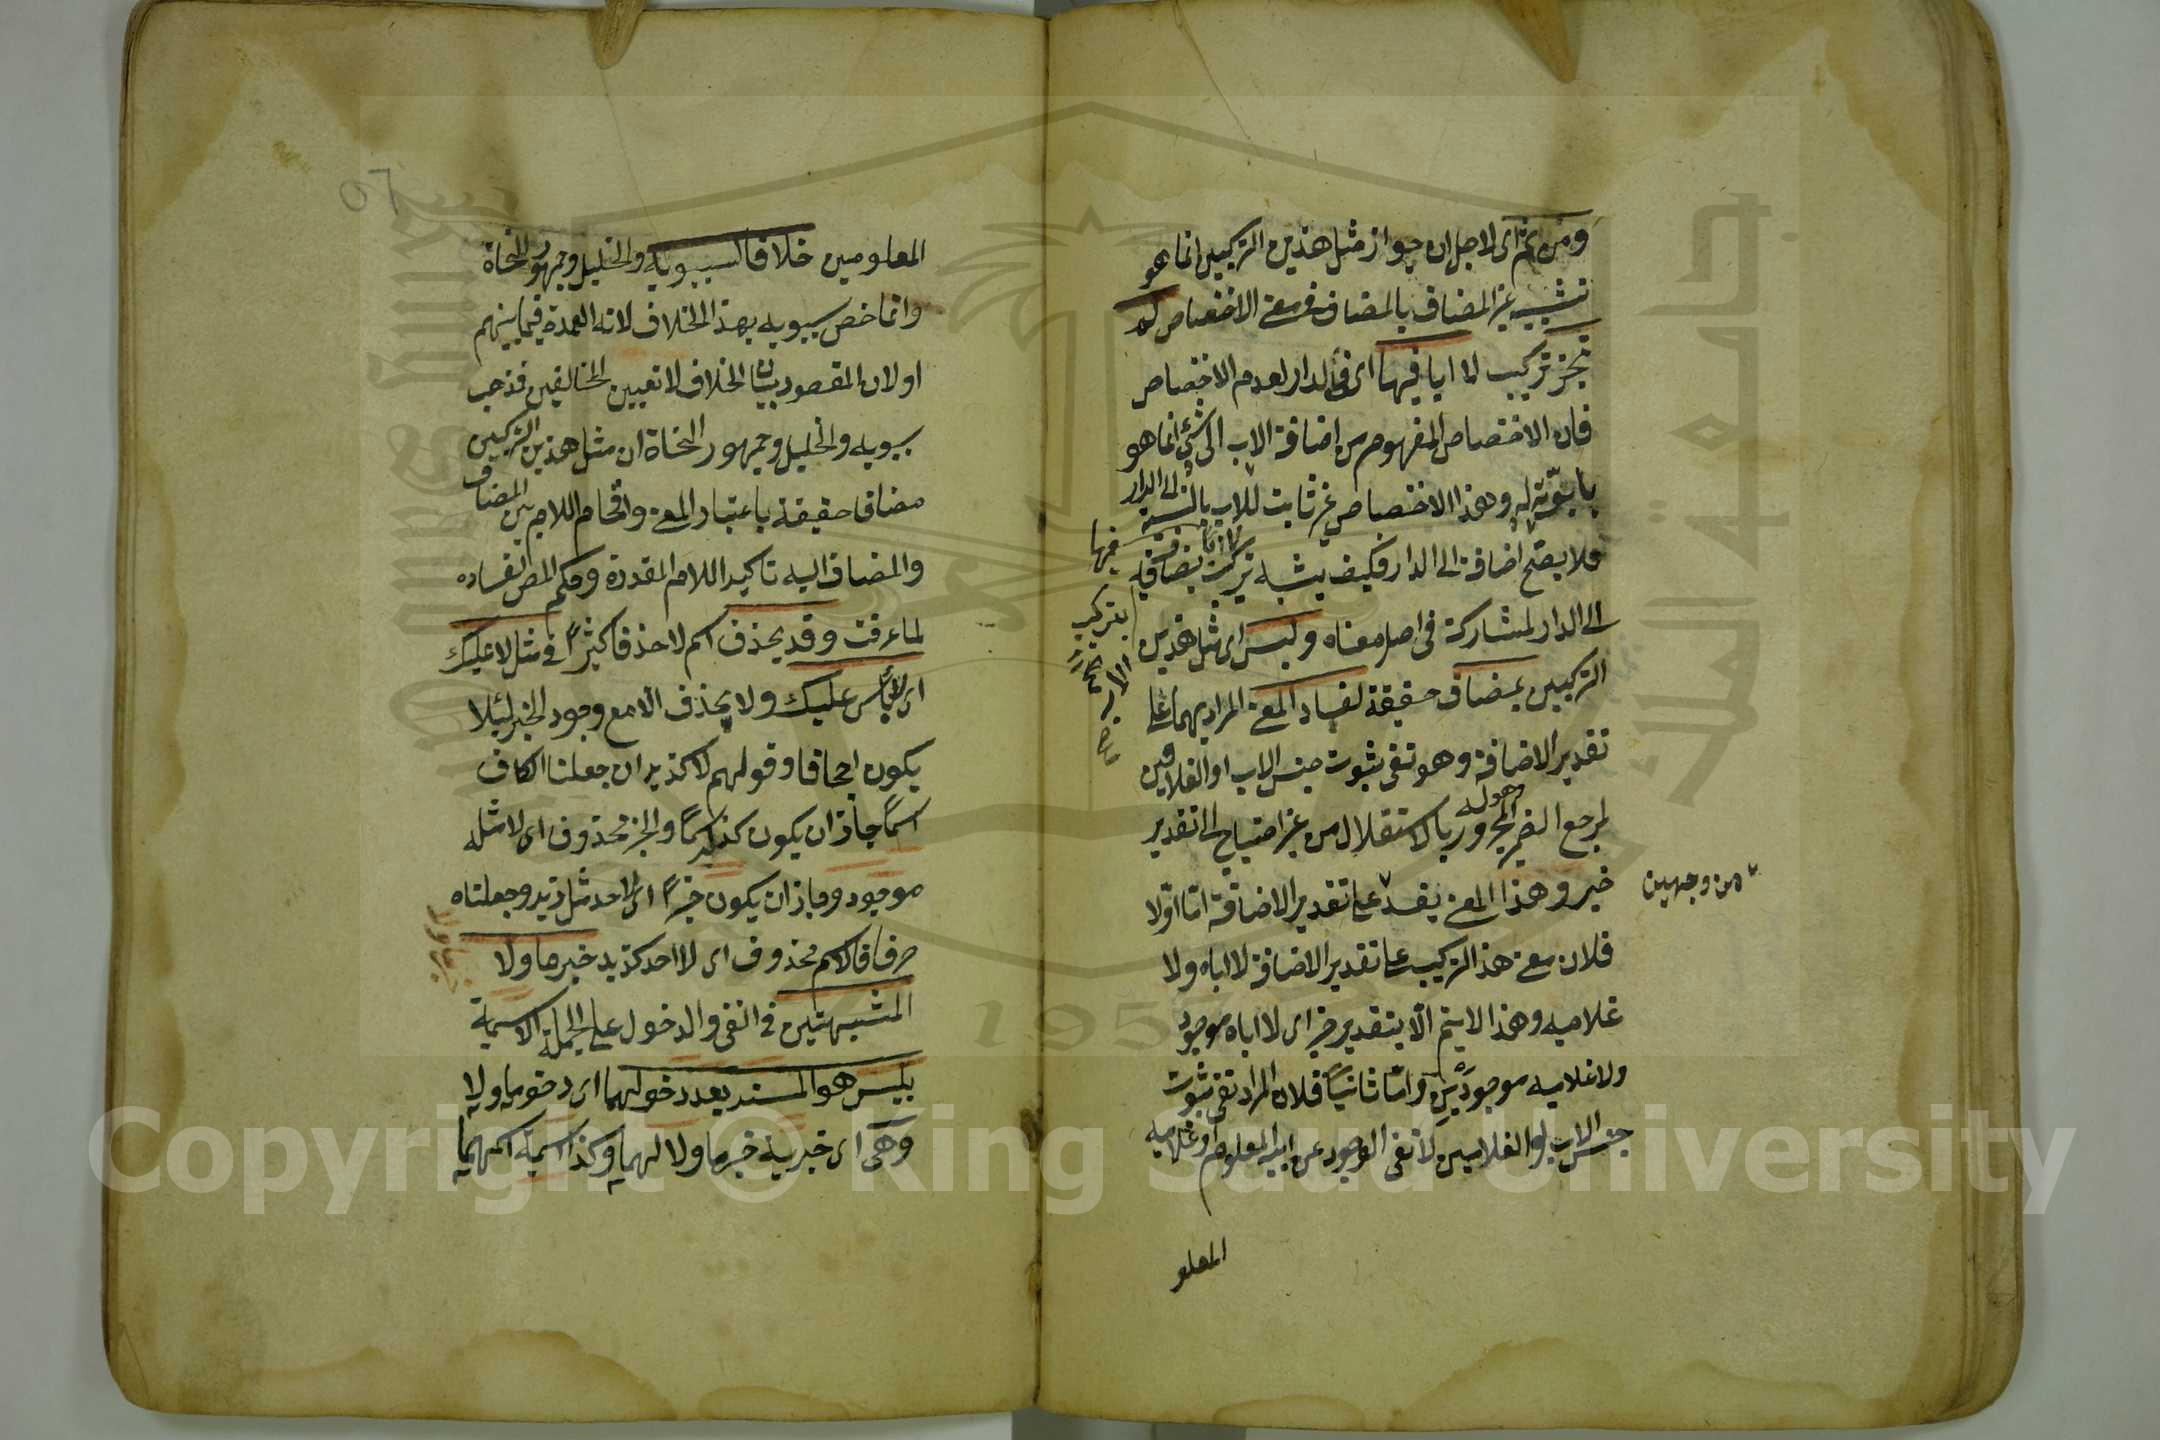 ومن ثم اى لاجل ان جواز مثل هذين التركيبين انما هو
تشبيه غير المضاف بالمضاف في معنى الاختصاص لم
يجز تركيب لا ابا فيها اى في الدار لعدم الاختصاص
فان الاختصاص المفهوم من اضافة الاب الى شئ انما هو
بابوته له وهذا الاختصاص غير ثابت للاب بالنسبة الى الدار
فلا يصح اضافة الى الدار فكيف يشبه تركيب لا ابا فيها
الى الدار لمشاركة فى اصل معناه وليس اى مثل هذين
التركيبين بمضاف حقيقة لفساد المعنى المراد بهما على
تقدير الاضافة وهو نفى ثبوت جنس الاب او الغلامين
لمرجع الضمير المجرور بالاستقلال من غير احتياج الى تقدير
خبر وهذا المعنى يفسد على تقدير الاضافة اما اولا
من وجهين
فلان معنى هذا التركيب على تقدير الاضافة لا اباه ولا
غلاميه وهذا لا يتم الا بتقدير خبر اى لا اباه موجود
ولا غلاميه موجودين واما ثانيا فلان المراد نفى ثبوت
جنس الاب او الغلامين لا نفى الوجود عن ابيه المعلوم وغلاميه
المعلو
المعلومين خلافا لسيبويه والخليل وجمهور النحاة
وانما خص سيبويه بهذا الخلاف لانه العمدة فيما بينهم
او لان المقصود بيان الخلاف لا تعيين المخالفين فذهب
سيبويه والخليل وجمهور النحاة ان مثل هذين التركيبين
مضاف حقيقة باعتبار المعنى واقحام اللام بين المضاف
والمضاف اليه تاكيد اللام المقدرة وحكم المص بفساده
لما عرفت وقد يحذف اسم لا حذفا كثيرا فى مثل لا عليك
اى لا باس عليك ولا يحذف الا مع وجود الخبر لئلا
يكون اجحافا وقولهم لا كزيد ان جعلنا الكاف
اسما جاز ان يكون كزيد اسما والخبر محذوف اى لا مثله
موجود وجاز ان يكون خبرا اى لا احد مثل زيد وجعلناه
حرفا فالاسم محذوف اى لا احد كزيد خبر ما ولا
المشبهتين فى النفى والدخول على الجملة الاسمية
بليس هو المسند بعد دخولهما اى دخول ما ولا
وهى اى خبرية خبر ما ولا لهما وكذا اسمية اسمهما